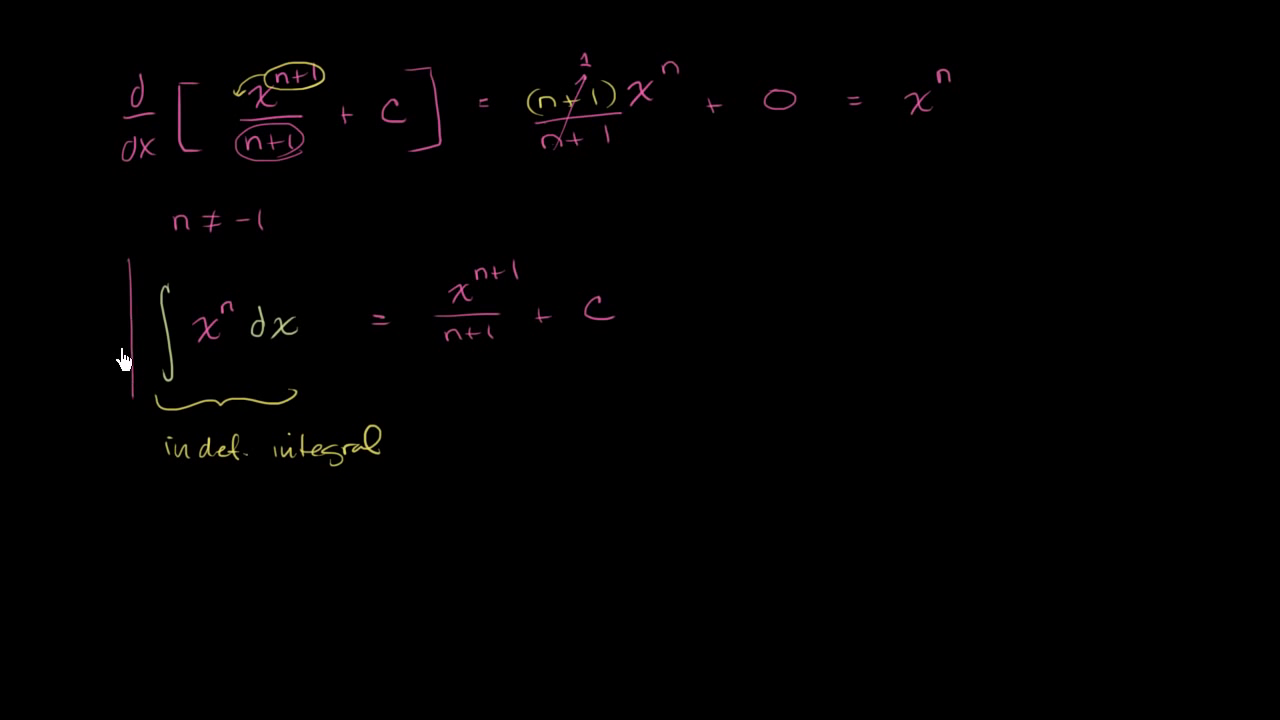 d/dx [ x^(n+1)/(n+1) + C ] = (n+1)x^n/(n+1) 1 + 0 = x^n
n ≠ -1
∫ x^n dx = x^(n+1)/(n+1) + C
indef. integral